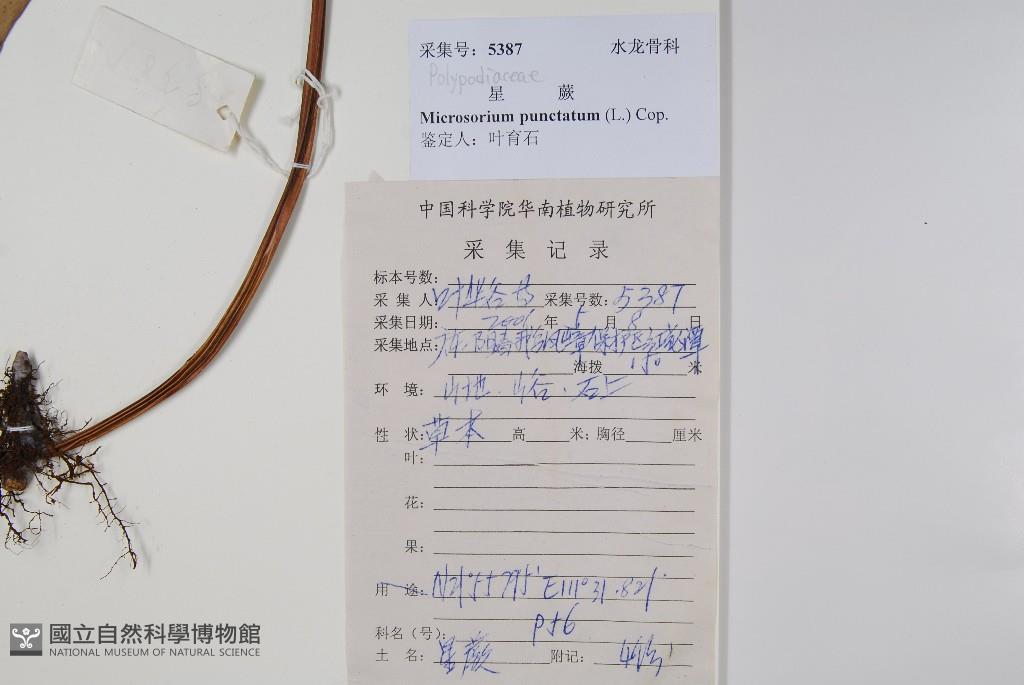 采集号：5387 水龙骨科
Polypodiaceae
星 蕨
Microsorium punctatum (L.) Cop.
鉴定人：叶育石
中国科学院华南植物研究所
采 集 记 录
标本号数：
采 集 人：叶华谷 采集号数：5387
采集日期：2001 年 5 月 8 日
采集地点：广东·阳春 保护区
海拨 150 米
环 境：山地·山谷·石上
性 状：草本 高 米；胸径 厘米
叶：
花：
果：
用 途：N21°55.795' E111°31.821'
P56
科名（号）：
土 名：星蕨 附记：4份
國立自然科學博物館
NATIONAL MUSEUM OF NATURAL SCIENCE